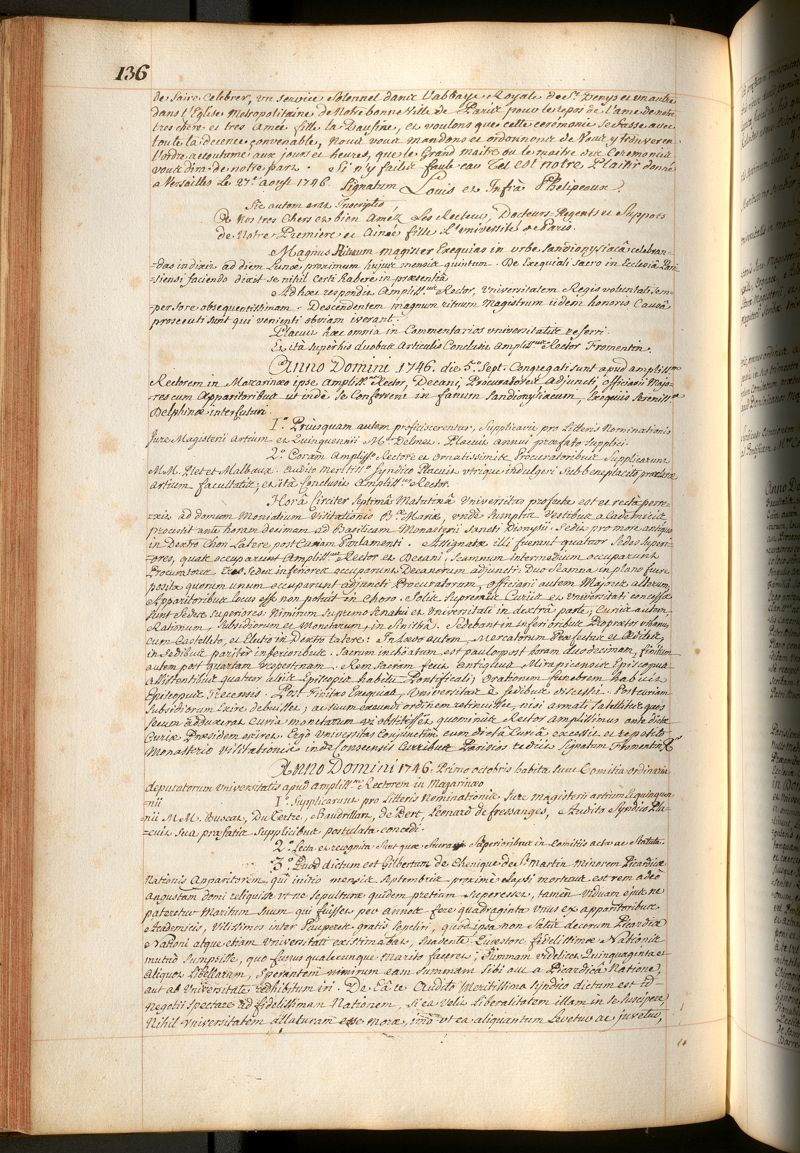 136
de faire celebrer, un service solonnel dans l'abbaye Royale de St Denys et un autre
dans l'Eglise Metropolitaine de Notre bonne Ville de Paris pour le repos de l'ame de notre
tres chere et tres Amée fille la Daufine, et voulons que cette ceremonie se fasse avec
toute la decence convenable, Nous vous mandons et ordonnons de Vous y trouver en
l'ordre accoutumé aux jours et heures, que le Grand maitre ou le maitre des Ceremonies
vous dira de notre part. Si n'y faites faute car Tel est notre Plaisir donné
a Versailles le 27e aoust 1746. Signatum Louis et Infrà Phelipeaux.
Sic autem erat Inscriptio,
A Nos tres Chers et bien Améz Les Recteur, Docteurs Regents et Supposts
de Notre Premiere et Ainée fille L'université de Paris.
Magnus Rituum magister Exequias in urbe sandionysiacâ celebran-
-das indixit ad diem Lunæ proximum hujus mensis quintum. De Exequiali Sacro in Ecclesiâ Pari-
siensi faciendo dixit se nihil certi habere in præsentiâ
Ad hæc respondit Ampliss.us Rector, Universitatem Regis voluntati sem-
per fore obsequentissimam. Descendentem magnum rituum Magistrum iidem honoris Causâ
prosecuti sunt qui venienti obviam iverant.
Placuit hæc omnia in Commentarios universitatis referri.
Et ità super his duobus Articulis Conclusit Ampliss.us Rector Fromentin.
Anno Domini 1746. die 5.a Sept. Congregati sunt apud ampliss.um
Rectorem in Mazarinæo ipse ampliss.us Rector, Decani, Procuratores Adjuncti, officiarii Majo-
res cum Apparitoribus ut indè se Conferrent in fanum Sandionysiacum, Exequiis Sereniss.æ
Delphinæ interfuturi.
1.o Priusquam autem proficiscerentur, Supplicavit pro Litteris Nominationis
Jure Magisterii Artium et Quinquennii M.er Delmer. Placuit annui præfato supplici.
2.o Coram Ampliss.o Rectore et Ornatissimis Procuratoribus Supplicarunt
M.M. Piet et Malbaux. Audito meritiss.o Syndico Placuit utrique indulgeri sub beneplacito præclaræ
artium facultatis, et ità Conclusit Ampliss.us Rector.
Horâ Circiter Septimâ Matutinâ Universitas profecta est et rectà perre-
xit ad domum Monialium Visitationis B.æ Mariæ, unde sumptis Vestibus academicis,
processit ante horam decimam ad Basilicam Monasterii Sancti Dionysii. Sedit pro more antiquo
in Dextro Chori Latere post Curiam Parlamenti. Assignatæ illi fuerunt quatuor Sedes superi-
ores, quas occuparunt Ampliss.us Rector et Decani, Scamnum Intermedium occuparunt
Procuratores. Tres Sedes inferiores occuparunt Decanorum adjuncti. Duo Scamna in plano fuere
posita quorum unum occuparunt adjuncti Procuratorum, officiarii autem Majores alterum,
Apparitoribus locus esse non potuit in Choro. Solis Supremis Curiis et Universitati concessæ
sunt Sedes superiores. Nimirum Supremo Senatui et Universitati in dextrâ parte, Curiis autem
Rationum, Subsidiorum et Monetarum, in sinistrâ. Sedebant in inferioribus Proprætor urbanus
cum Castelleto, et Electio in Dextro latere: In Lævo autem, Mercatorum Præfectus et Ædiles,
in Sedibus pariter inferioribus. Sacrum inchoatum est paulo post horam duodecimam, finitum
autem post quartam vespertinam. Rem Sacram fecit antiquus Mirapicensis Episcopus
assistentibus quatuor aliis Episcopis habitu Pontificali; orationem funebrem habuit
Episcopus Recensis. Post finitas Exequias, Universitas è sedibus discessit. Post curiam
Subsidiorum Exire debuisset, ac suum exeundi ordinem retinuisset, nisi armati Satellites quos
secum adduxerat Curia monetarum vi obstitissent quominus Rector Amplissimus ante dictæ
Curiæ Præsidem exiret. Ergò Universitas Conjunctim cum dictâ Curiâ excessit et repetito
Monasterio Visitationis inde Consensis Curribus Parisios rediit. Signatum Fromentin R.
Anno Domini 1746. Primo octobris habita sunt Comitia ordinaria
deputatorum Universitatis apud ampliss.um Rectorem in Mazarinæo
1.o Supplicarunt pro Litteris Nominationis Jure Magisterii artium et quinquen-
nii M.M. Buscat, Du Tertre, Baudrillart, de Bert, Leonard de fressanges, Audito Syndico Pla-
cuit sua præfatis Supplicibus postulata concedi.
2.o Lecta et recognita sunt quæ fuerant Superioribus in Comitiis acta ac Statuta.
3.o Quod dictum est Gilbertum de Chenique de St Martin minorem Picardicæ
Nationis Apparitorem, qui initio mensis Septembris proximè elapsi mortuus est rem adeò
angustam domi reliquisse ut ne sepulturæ quidem pretium superesset, tamen viduam ejus ne
pateretur Maritum suum qui fuisset per annos ferè quadraginta unus ex apparitoribus
Academicis, Vilissimos inter Pauperes gratis sepeliri, quod ipsa non satis decorum Picardicæ
Nationi atque etiam Universitati existimabat, Suadente Quæstore fidelissimæ Nationis
mutuò sumpsisse, quo funus qualecumque marito faceret; Summam videlicet Quinquaginta et
aliquot Libellarum, Sperantem nimirum eam summam Sibi aut a Picardicâ Natione,
aut ab Universitate adhibitum iri. De Eâ re Audito Meritissimo Syndico dictum est id
negotii Spectare ad fidelissimam Nationem, si ea velit Liberalitatem illam in se suscipere,
Nihil Universitatem allaturam esse moræ, imò ut ea aliquantum Levetur ac juvetur,